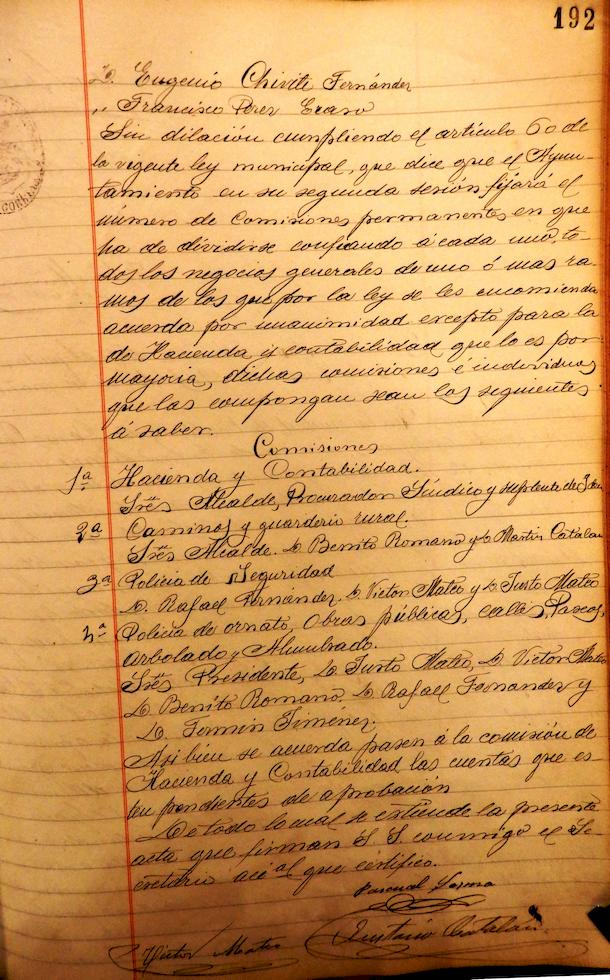 192
D. Eugenio Chivite Fernández
„ Francisco Perez Eraso
Sin dilación cumpliendo el artículo 60 de
la vigente ley municipal, que dice que el Ayun-
tamiento en su segunda sesión fijará el
número de Comisiones permanentes en que
ha de dividirse confiando á cada uno, to-
dos los negocios generales de uno ó mas ra-
mos de los que por la ley se les encomienda
acuerda por unanimidad excepto para la
de Hacienda y contabilidad que lo es por
mayoria, dichas comisiones é individuos
que las compongan sean los siguientes
á saber.
Comisiones
1ª Hacienda y Contabilidad.
Srẽs Alcalde, Procurador Síndico y suplente de
2ª Caminos y guarderio rural.
Srẽs Alcalde. D. Benito Romano y D. Martin Catalan
3ª Policia de Seguridad
D. Rafael Fernández, D. Victor Mateo y D. Justo Mateo
4ª Policia de ornato, Obras públicas, calles, Paseos,
Arbolado y Alumbrado.
Srẽs Presidente, D. Justo Mateo, D. Victor Mateo
D. Benito Romano, D. Rafael Fernandez y
D. Fermin Jiménez.
Asi bien se acuerda pasen á la comisión de
Hacienda y Contabilidad las cuentas que es-
ten pendientes de aprobación
De todo lo cual se estiende la presente
acta que firman S. S. conmigo el Se-
cretario accal que certifico.
Pascual
Victor Mateo
Eustasio Catalan